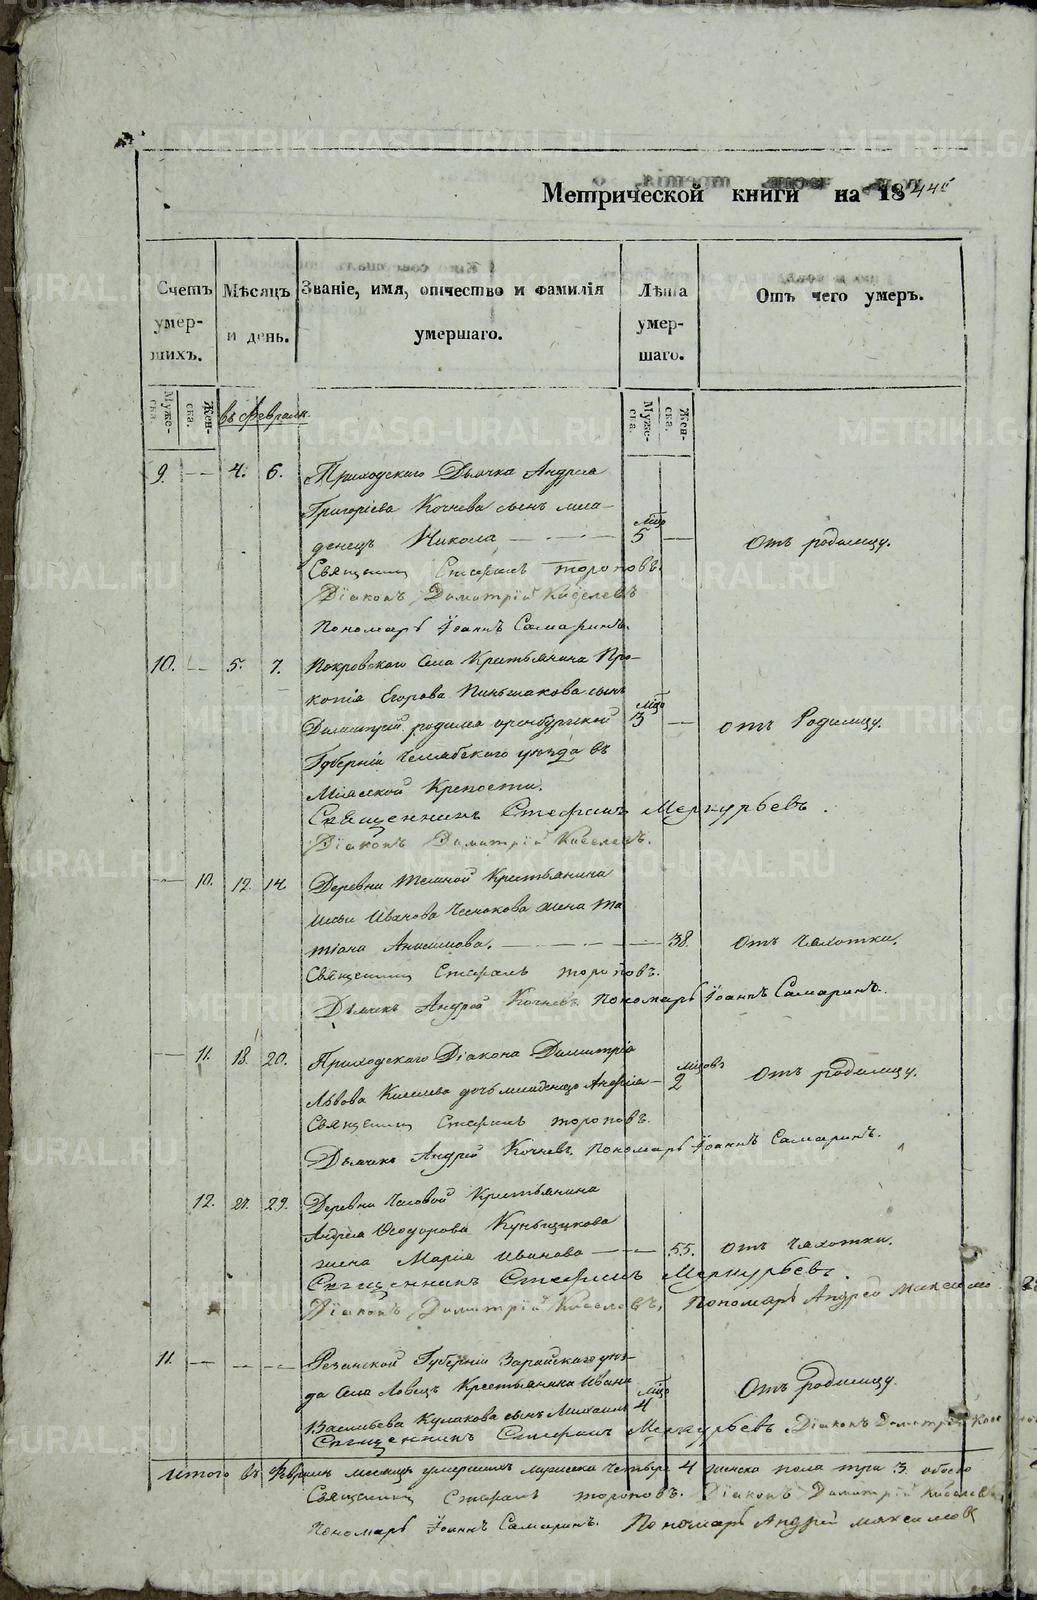 Метрической книги на 1844й
Счетъ умер-
шихъ.
Мѣсяцъ
и день.
Званіе, имя, отчество и фамилія
умершаго.
Лѣта
умер-
шаго.
Отъ чего умеръ.
Муже-
ска.
Жен-
ска.
Муже-
ска.
Жен-
ска.
въ Февралѣ.
9. — 4. 6. Приходскаго Дьячка Андрея
Григоріева Кочнева сынъ мла-
денецъ Никола — 5 — Отъ родимцу.
Священникъ Стефанъ Тороповъ.
Діаконъ Димитрій Киселевъ
Пономарь Іоаннъ Самаринъ.
10. — 5. 7. Покровскаго села Крестьянина Про-
копія Егорова Пиньжакова сынъ
Димитрій родился оренбургской 3 — отъ Родимцу.
Губерніи Челябскаго уѣзда въ
Міясской Крепости.
Священникъ Стефанъ Меркурьевъ.
Діаконъ Димитрій Киселевъ.
— 10. 12. 14. Деревни Темной Крестьянина
Ивана Чеснокова жена Та
тіана Анисимова. — 38. Отъ Чахотки.
Священникъ Стефанъ Тороповъ.
Дьячекъ Андрей Кочневъ Пономарь Іоаннъ Самаринъ.
— 11. 18. 20. Приходскаго Діакона Димитрія
Львова Киселева дочь младенецъ — 2 Отъ родимцу.
Священникъ Стефанъ Тороповъ.
Дьячекъ Андрей Кочневъ. Пономарь Іоаннъ Самаринъ.
12. 27. 29. Деревни Часовой Крестьянина
Андрея Ѳеодорова Куньщикова
жена Марія Иванова — 55. отъ Чахотки.
Священникъ Стефанъ Меркурьевъ.
Діаконъ Димитрій Киселевъ, Пономарь Андрей Максимо
11. — — — Резанской Губерніи Зарайскаго уѣз-
да села Ловецъ Крестьянина Ивана
Васильева Кулакова сынъ Михаилъ 4 Отъ родимцу.
Священникъ Стефанъ Меркурьевъ Діаконъ Димитрій Кисе
Итого въ Февралѣ месяцѣ умершихъ мужеска четыре 4 женска пола три 3. обоего
Священникъ Стефанъ Тороповъ. Діаконъ Димитрій Киселевъ
Пономарь Іоаннъ Самаринъ. Пономарь Андрей Максимовъ
METRIKI.GASO-URAL.RU